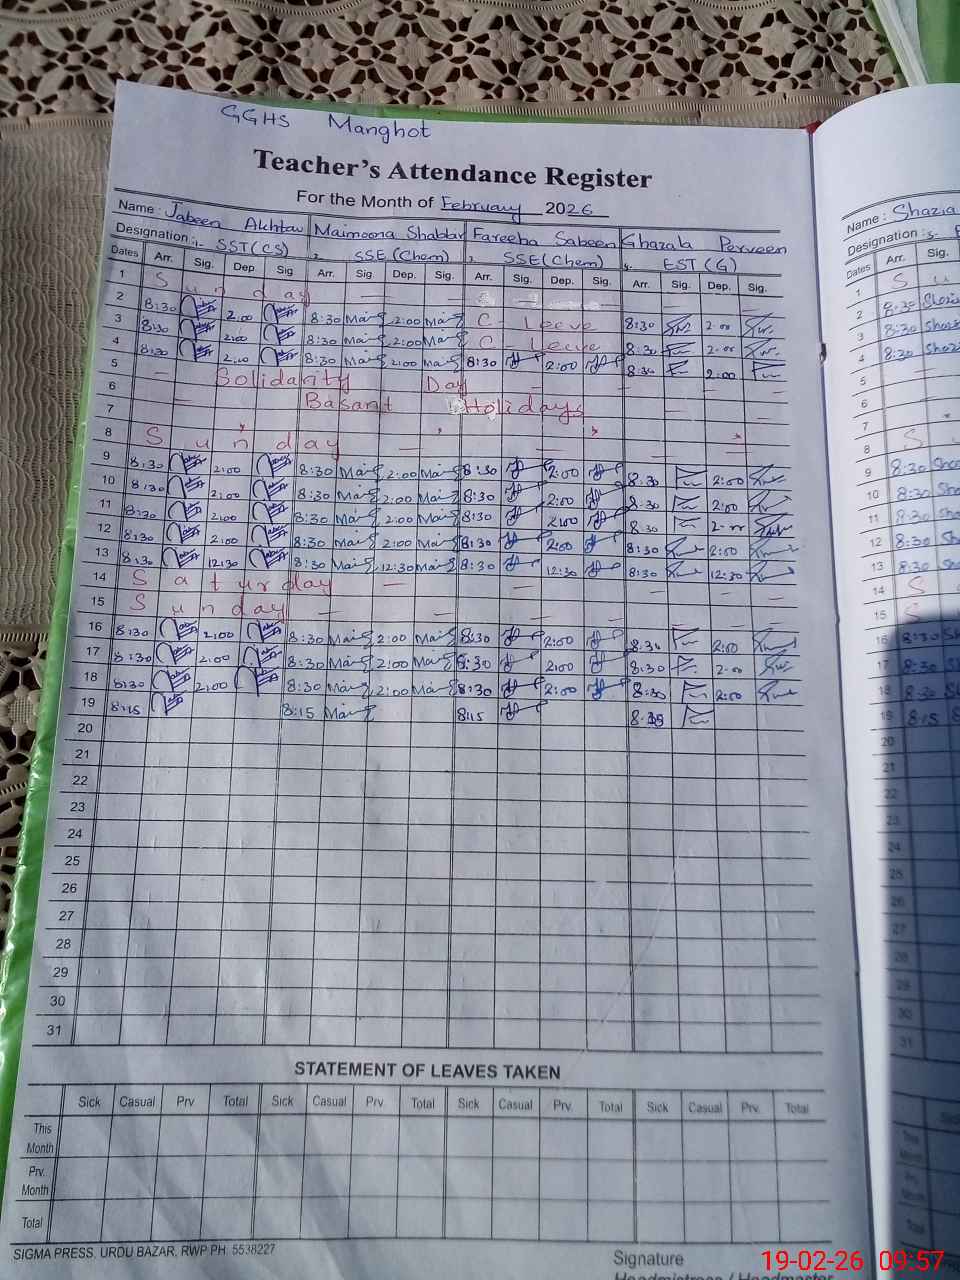 GGHS Manghot
Teacher's Attendance Register
For the Month of February 2026
Name: Jabeen Akhtar Maimoona Shabbir Fareeha Sabeen Ghazala Perveen
Designation: 1. SST(CS) 2. SSE (Chem) 3. SSE(Chem) 4. EST (G)
Dates Arr. Sig. Dep. Sig Arr. Sig. Dep. Sig. Arr. Sig. Dep. Sig. Arr. Sig. Dep. Sig.
1 S u n d a y
2 8:30 2:00 8:30 2:00 C - Leeve 8:30 2:00
3 8:30 2:00 8:30 2:00 C Leeve 8:30 2:00
4 8:30 2:00 8:30 2:00 8:30 2:00 8:30 2:00
5 Solidarity Day
6 Basant Holidays
7
8 S u n d a y
9 8:30 2:00 8:30 2:00 8:30 2:00 8:30 2:00
10 8:30 2:00 8:30 2:00 8:30 2:00 8:30 2:00
11 8:30 2:00 8:30 2:00 8:30 2:00 8:30 2:00
12 8:30 2:00 8:30 2:00 8:30 2:00 8:30 2:00
13 8:30 12:30 8:30 12:30 8:30 12:30 8:30 12:30
14 S a t u r d a y
15 S u n d a y
16 8:30 2:00 8:30 2:00 8:30 2:00 8:30 2:00
17 8:30 2:00 8:30 2:00 8:30 2:00 8:30 2:00
18 8:30 2:00 8:30 2:00 8:30 2:00 8:30 2:00
19 8:15 8:15 8:15
20
21
22
23
24
25
26
27
28
29
30
31
STATEMENT OF LEAVES TAKEN
Sick Casual Prv. Total Sick Casual Prv. Total Sick Casual Prv. Total Sick Casual Prv. Total
This Month
Prv. Month
Total
SIGMA PRESS, URDU BAZAR, RWP PH: 5538227
Signature
Headmistress / Headmaster
Name: Shazia
Designation:
Dates Arr. Sig.
1 S u
2 8:30
3 8:30
4 8:30
5
6
7
8 S
9 8:30
10 8:30
11 8:30
12 8:30
13 8:30
14 S
15 S
16 8:30
17 8:30
18 8:30
19 8:15
20
21
22
23
24
25
26
27
28
29
30
31
19-02-26 09:57